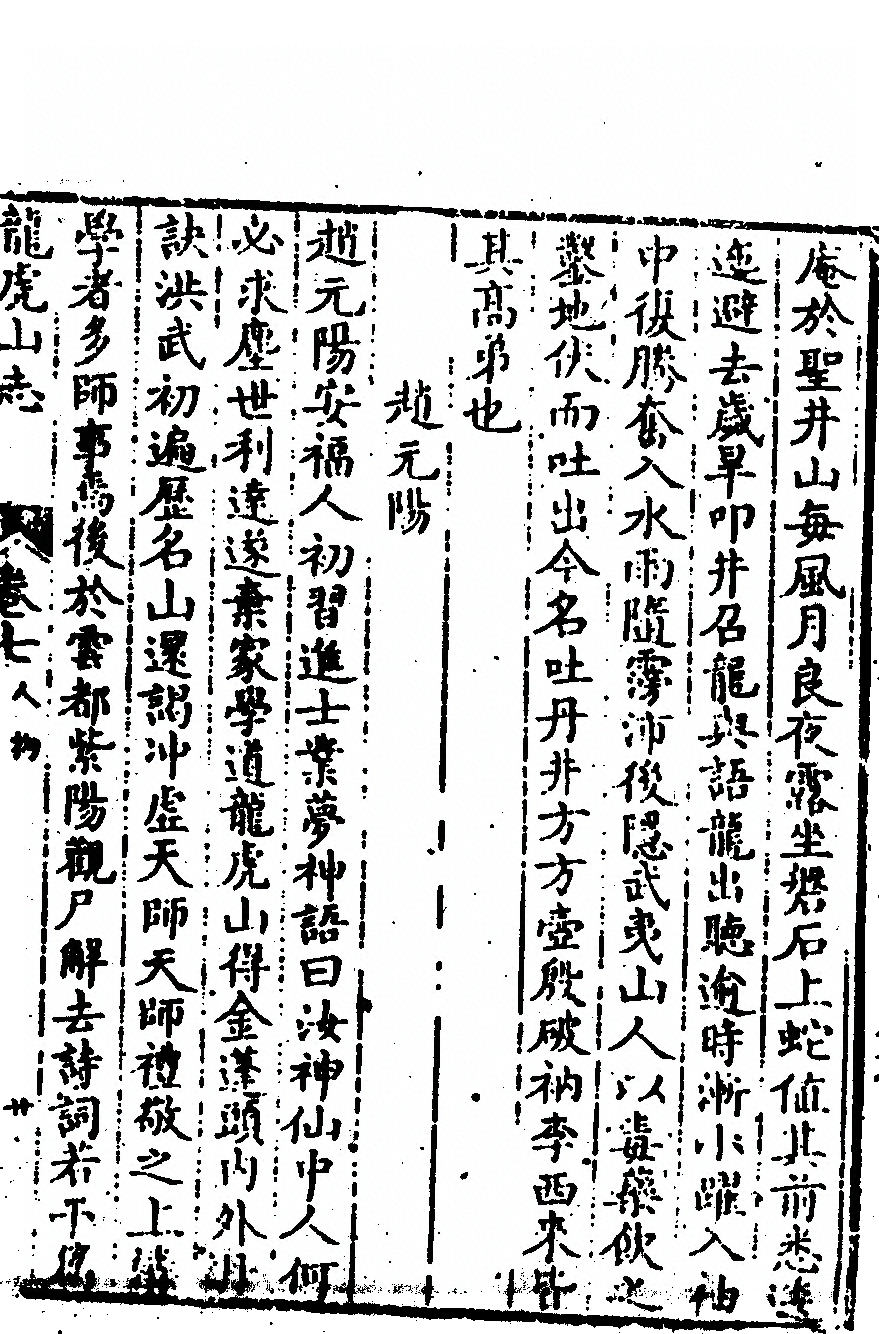 庵於聖井山每風月良夜露坐磐石上蛇值其前悉
逡避去歲旱叩井召龍與語龍出聽逾時漸小躍入袖
中復勝奮入水雨隨霶沛後隱武夷山人以毒藥飲之
鑿地伏而吐出今名吐丹井方方壺殷破衲李西來皆
其高弟也
趙元陽
趙元陽安福人初習進士業夢神語曰汝神仙中人何
必求塵世利達遂棄家學道龍虎山得金蓬頭內外丹
訣洪武初遍歷名山還謁冲虛天師天師禮敬之上清
學者多師事焉後於雲都紫陽觀尸解去詩詞若不
龍虎山志
卷七
人物
廿